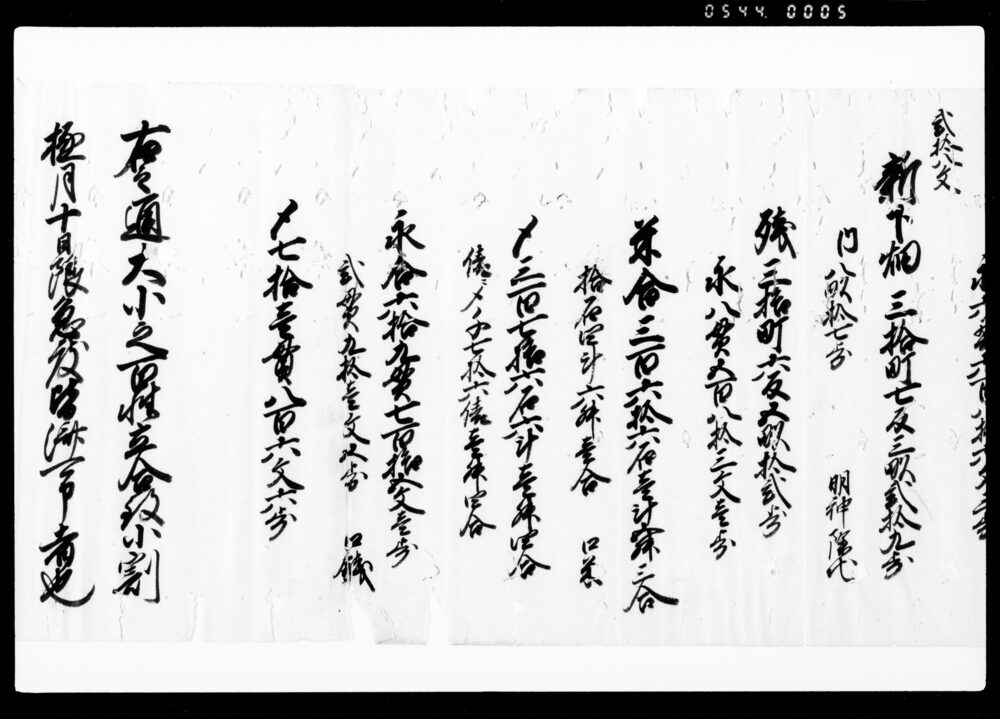 0544 0005
弐拾八文
新下畑 三拾町七反三畝弐拾九歩
内 八畝拾七歩 明神除地
残三拾町六反五畝拾弐歩
永八貫五百八拾三文壱歩
米合三百六拾六石壱斗 升三合
拾石四斗六升壱合 口米
〆三百七拾六石六斗壱升四合
俵〆 七拾六俵壱升四合
永合六拾九貫七百拾五文壱歩
弐貫九拾壱文五歩 口銭
〆七拾壱貫八百六文六歩
右之通大小之百姓立合致小割
極月十日限急度皆済可申者也